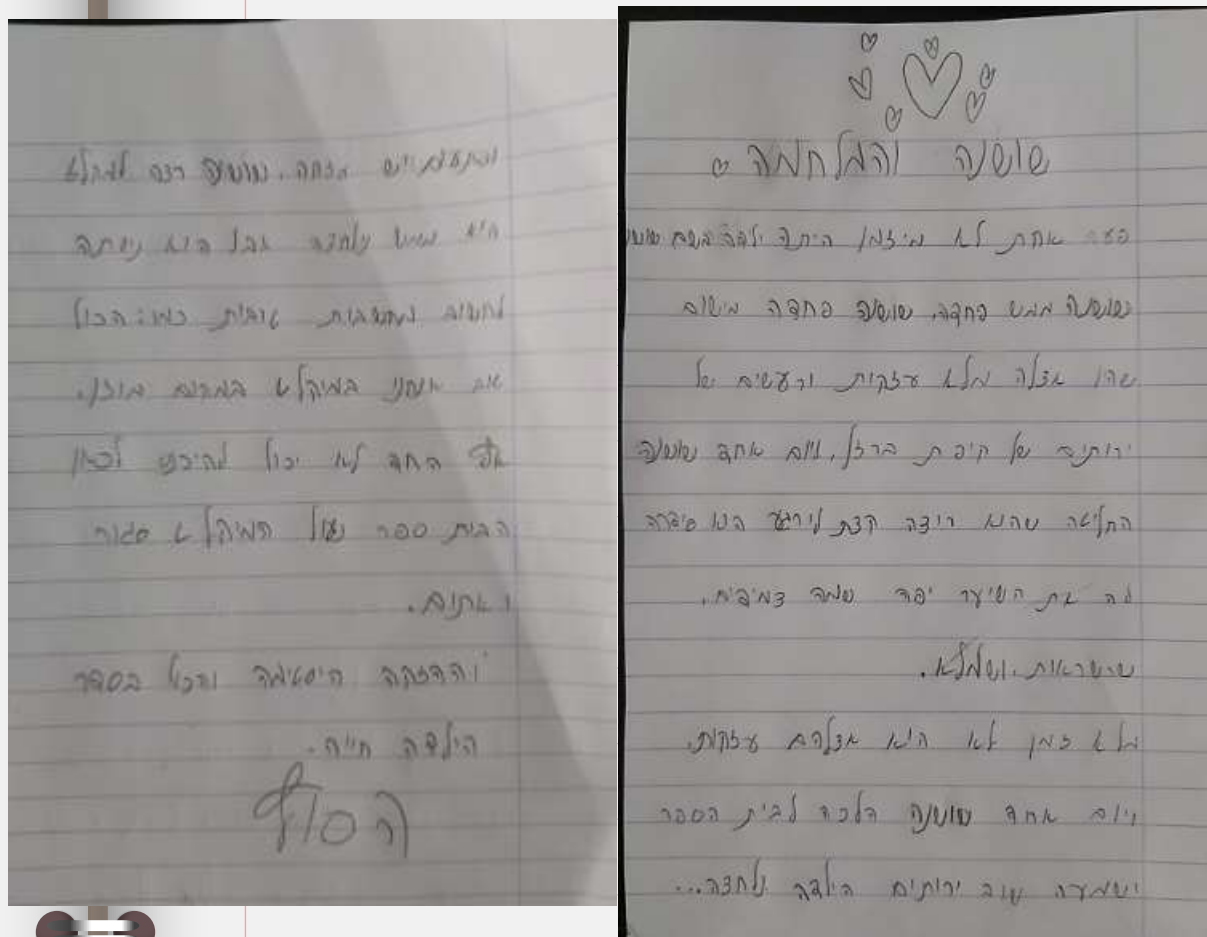 שושנה והמלחמה
פעם אחת לא מיזמן היתה ילדה בשם שושנ
ששושנה ממש פחדה, שושנה פחדה מישום
שהיו אצלה מלא עזקות ורעשים של
ירותים של קיפת ברזל, ויום אחד שושנה
החליטה שהיא ריצה קצת לירגע היא סידרה
לה את השיער יפה שמה צמידים,
שרשראות, ושמלא.
מלא זמן לא היא אצלהם עזקות,
ויום אחד שושנה הלכה לבית הספר
ושמעה שוב ירותים הילדה נלחצה...
אזקה, שושנה רצה למקלט
היא ממש נלחצה אבל היא ניסתה
לחשוב מחשבות טובות כמו: הכול
טוב אנחנו במיקלט במקום מוגן,
אף אחד לא יכול להיכנס לכאן
הבית ספר נעול המיקלט סגור
ואתום.
והדזקה היסטימה והכול בסדר
הילדה חייה.
הסוף